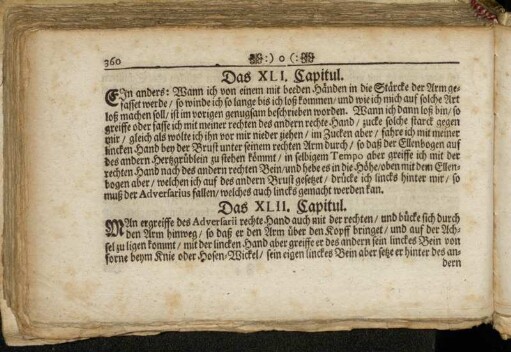 360 :) o (:
Das XLI. Capitul.
EIn anders: Wann ich von einem mit beeden Händen in die Stärcke der Arm ge-
fasset werde / so winde ich so lange biß ich loß kommen / und wie ich mich auf solche Art
loß machen soll / ist im vorigen genugsam beschrieben worden. Wann ich dann loß bin / so
greiffe oder fasse ich mit meiner rechten des andern rechte Hand / zucke solche starck gegen
mir / gleich als wolte ich ihn vor mir nieder ziehen / im Zucken aber / fahre ich mit meiner
lincken Hand bey der Brust unter seinem rechten Arm durch / so daß der Ellenbogen auf
des andern Hertzgrüblein zu stehen kömmt / in selbigem Tempo aber greiffe ich mit der
rechten Hand nach des andern rechten Bein / und hebe es in die Höhe / oben mit dem Ellen-
bogen aber / welchen ich auf des andern Brust gesetzet / drücke ich lincks hinter mir / so
muß der Adversarius fallen / welches auch lincks gemacht werden kan.
Das XLII. Capitul.
MAn ergreiffe des Adversarii rechte Hand auch mit der rechten / und bücke sich durch
den Arm hinweg / so daß er den Arm über den Kopff bringet / und auf der Ach-
sel zu ligen kommt / mit der lincken Hand aber greiffe er des andern sein linckes Bein von
forne beym Knie oder Hosen-Wickel / sein eigen linckes Bein aber setze er hinter des an-
dern